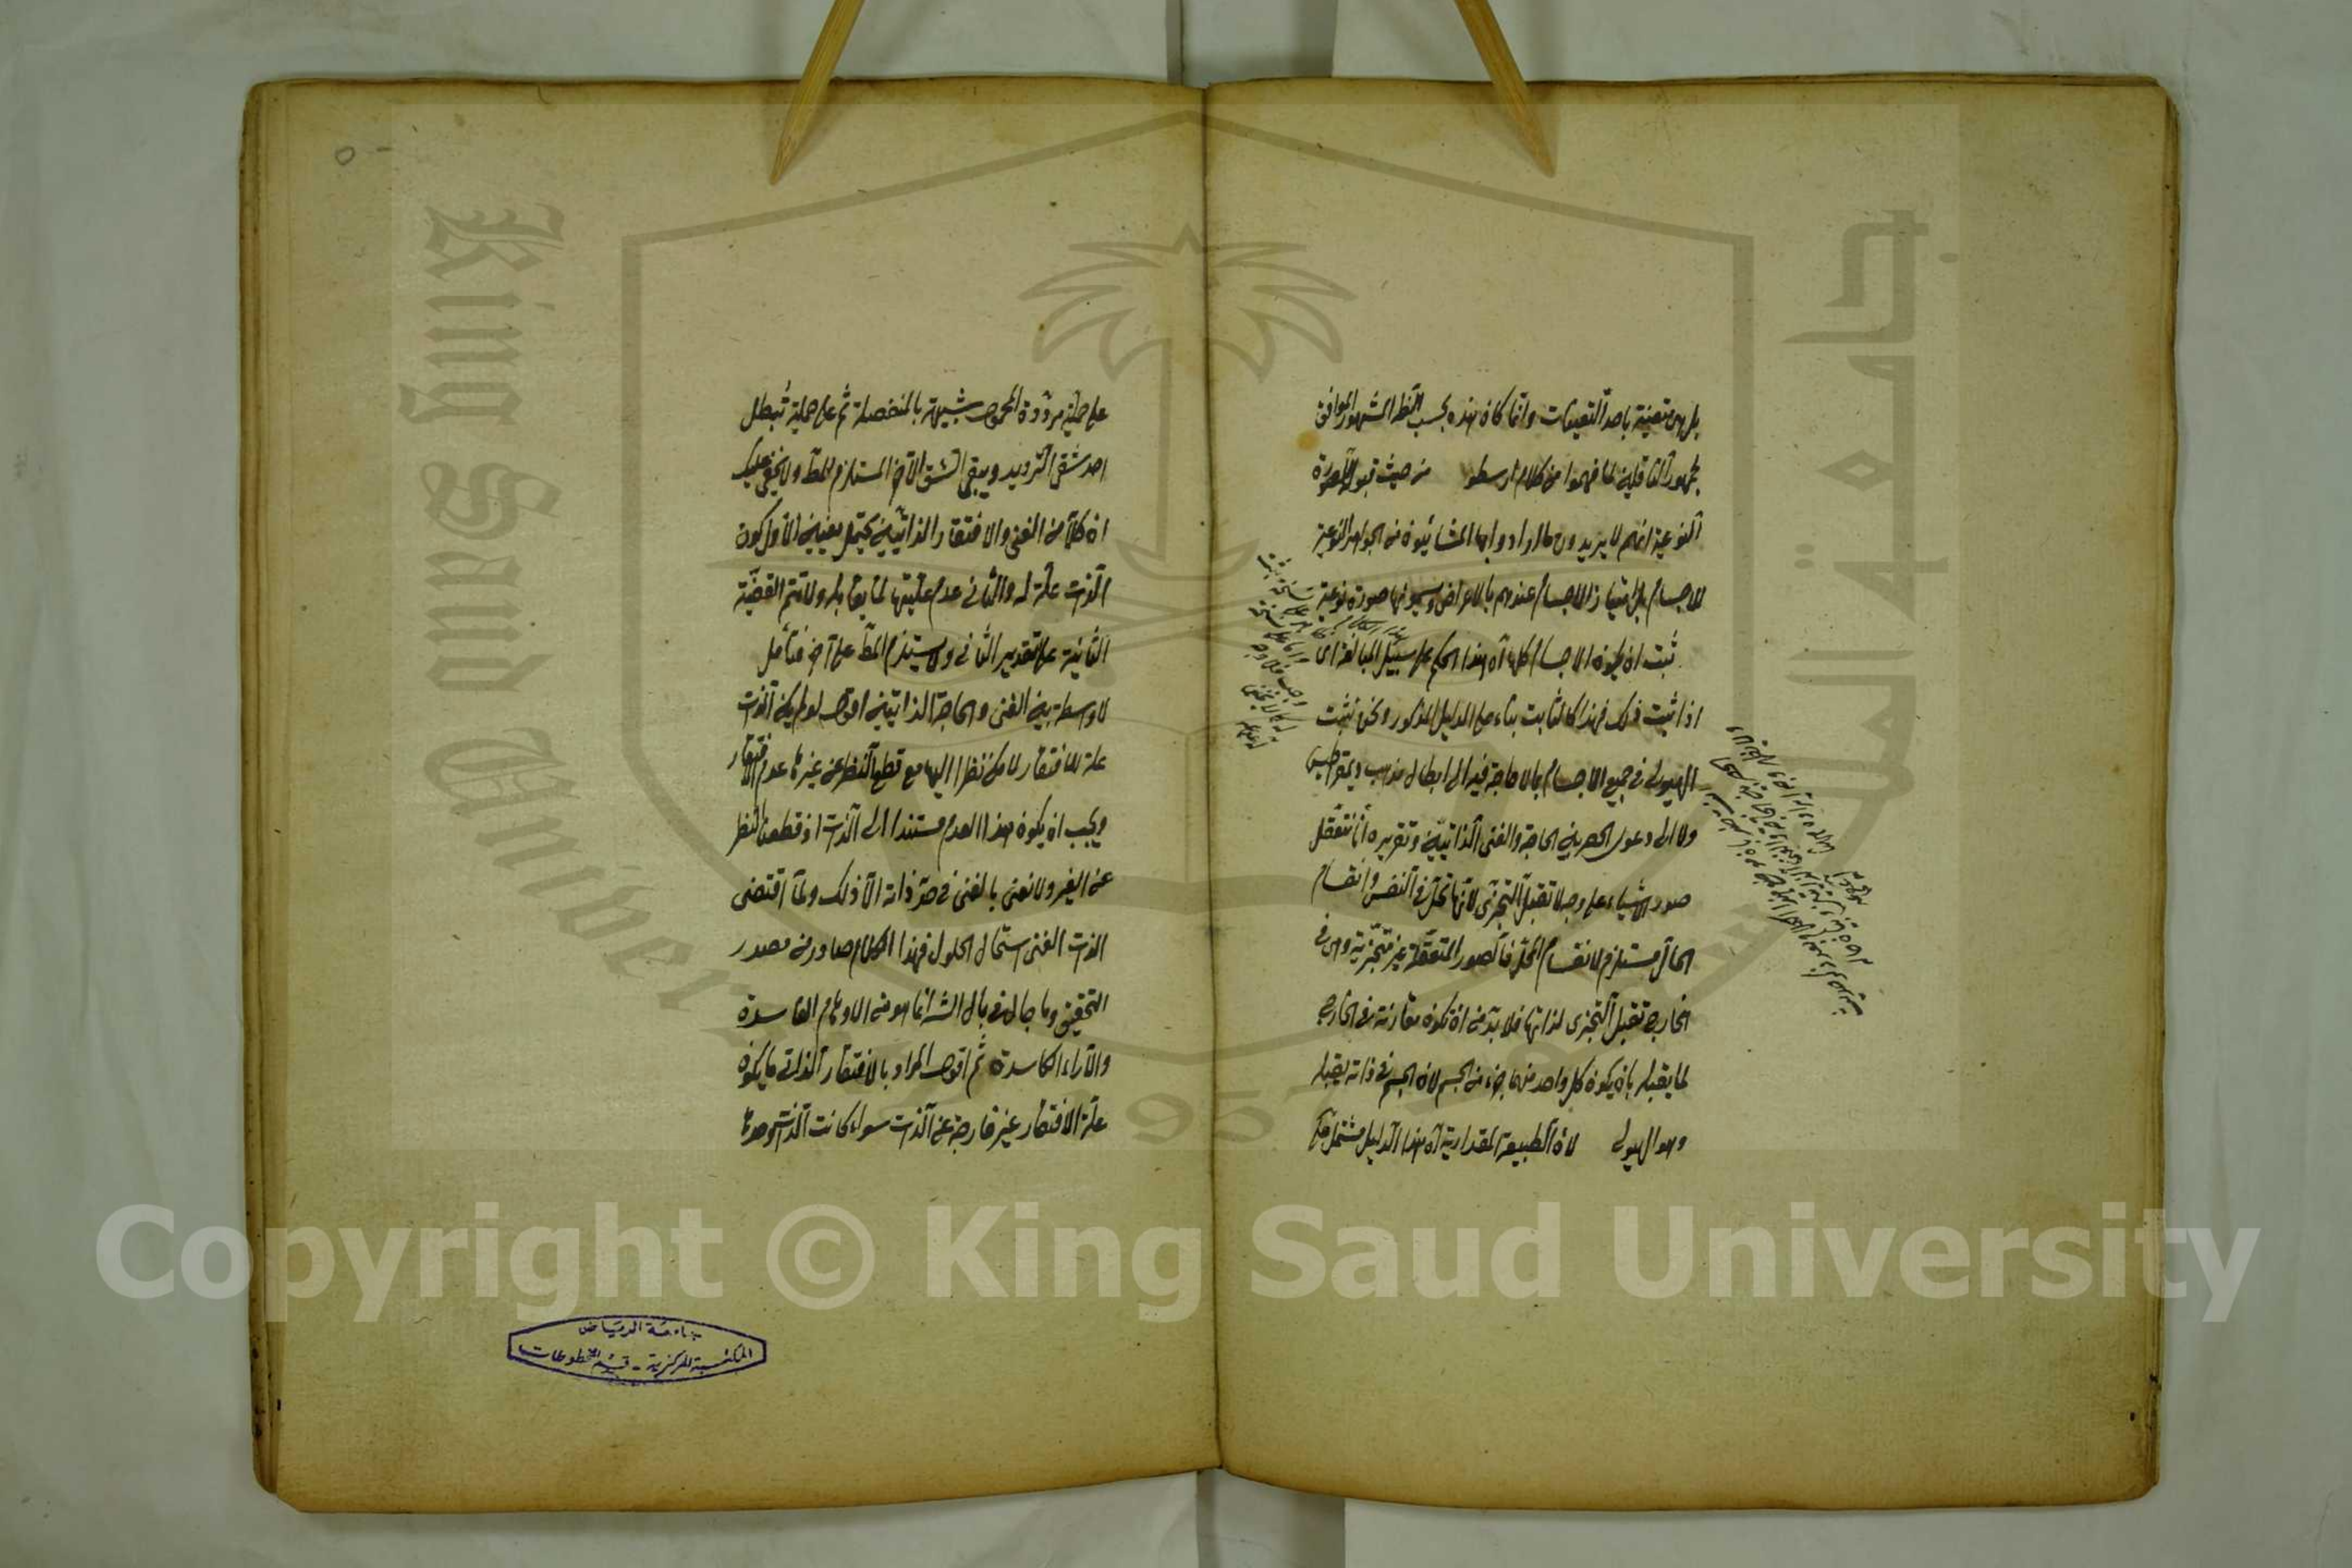 بل هى متعينة باحد التعينات وانما كان هذه بحسب النظر المشهور الموافق
لجمهور الناقلين لما فهموا من كلام ارسطو من حيث قبول الصورة
النوعية انهم لا يريدون ما ارادوا بها المشائيون من الجواهر النوعية
للاجسام بل امتياز الاجسام عندهم بالاعراض ويسمونها صورة نوعية
ثبت ان يكون الاجسام كلها اه هذا الحكم على سبيل المبالغة اى
اذا ثبت ذلك فهذا كالثابت بناء على الدليل المذكور ونحن نثبت
الهيولى فى جميع الاجسام بالا حاجة فيه الى ابطال مذهب ديمقراطيس
ولا الى دعوى الحصر بين الحاجة والغنى الذاتيين وتقريره انا نتعقل
صور الاشياء على وجه لا تقبل التجزى لانها تحل فى النفس وانقسام
الحال مستلزم لانقسام المحل فالصور المتعقلة غير متجزية وهى فى
الخارج تقبل التجزى لذاتها فلا بد من ان تكون مقارنة فى الخارج
لما يقبله بان يكون كل واحد منهما جزء من الجسم لان الجسم فى ذاته يقبله
وهو الهيولى لان الطبيعة المقدارية اه هذا الدليل مشتمل
على حملية مرددة المحمول شبيهة بالمنفصلة ثم على حملية تبطل
احد شقى الترديد ويبقى الشق الآخر المستلزم للمط ولا يخفى عليك
ان كلا من الغنى والافتقار الذاتيين يحتمل معنيين الاول كون
الذات علة له والثانى عدم عليتها لما يقابله ولا تتم القضية
الثانية على تقدير الثانى ولا يستلزم المط على آخر فتأمل
لا واسطة بين الغنى والحاجة الذاتيين اقول لو لم يكن الذات
علة للافتقار لامكن نظرا اليها مع قطع النظر عن غيرها عدم الافتقار
ويجب ان يكون هذا العدم مستندا الى الذات اذ قطعنا النظر
عن الغير ولا نعنى بالغنى فى حد ذاته الا ذلك ولما اقتضى
الذات الغنى استحال الحلول فهذا الكلام صادر من مصدر
التحقيق وما جال فى بال الش انما هو من الاوهام الفاسدة
والآراء الكاسدة ثم اقول المراد بالافتقار الذاتى ما يكون
علة الافتقار غير خارجة عن الذات سواء كانت الذات وحدها
جامعة الرياض
المكتبة المركزية - قسم المخطوطات
King Saud University
جامعة الملك
1957
Copyright © King Saud University